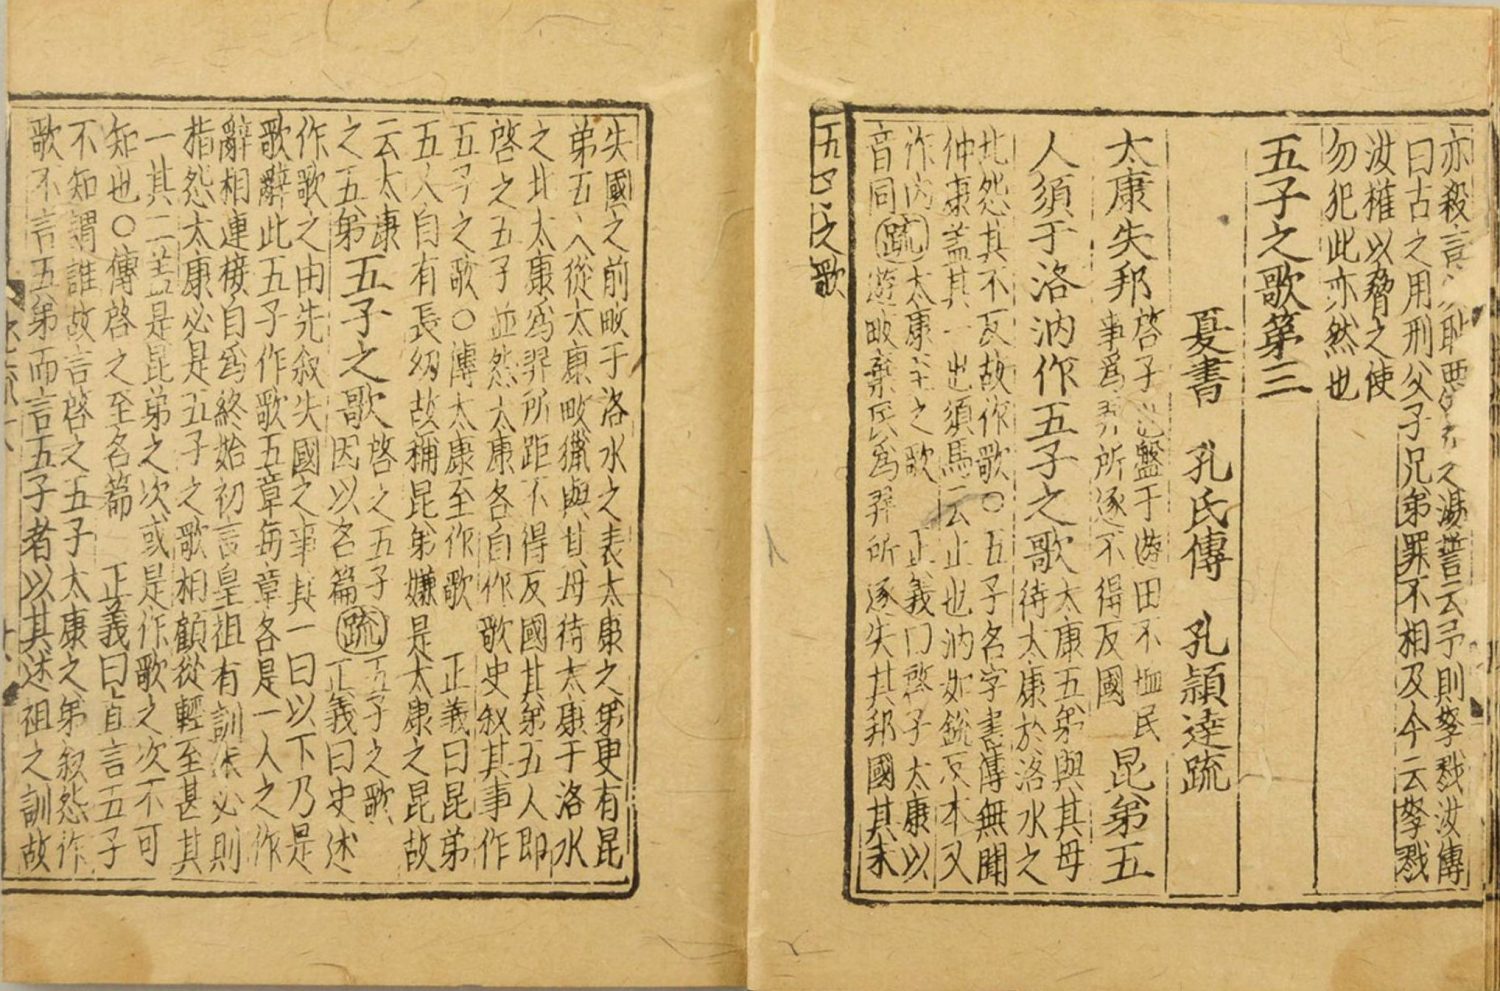 亦殺言 恥 之湯誓云予則孥戮汝傳
曰古之用刑父子兄弟罪不相及今云孥戮
汝權以脅之使
勿犯此亦然也
五子之歌第三
夏書 孔氏傳 孔穎達疏
太康失邦啓子也盤于遊田不恤民事爲羿所逐不得反國昆弟五
人須于洛汭作五子之歌太康五弟與其母待太康於洛水之
北怨其不反故作歌○五子名字書傳無聞
仲康蓋其一也須馬云止也汭如銳反本又
作内音同疏太康至之歌 正義曰啓子太康以
遊畋棄民爲羿所逐失其邦國其未
五子之歌
失國之前畋于洛水之表太康之弟更有昆
弟五人從太康畋獵與其母待太康于洛水
之北太康爲羿所距不得反國其弟五人即
啓之五子並怨太康各自作歌史叙其事作
五子之歌○傳太康至作歌 正義曰昆弟
五人自有長幼故稱昆弟嫌是太康之昆故
云太康之五弟五子之歌啓之五子因以名篇疏五子之歌正義曰史述
作歌之由先叙失國之事其一曰以下乃是
歌辭此五子作歌五章每章各是一人之作
辭相連接自爲終始初言皇祖有訓未必則
指怨太康必是五子之歌相顧從輕至甚其
一其二蓋是昆弟之次或是作歌之次不可
知也○傳啓之至名篇 正義曰直言五子
不知謂誰故言啓之五子太康之弟叙怨作
歌不言五弟而言五子者以其述祖之訓故